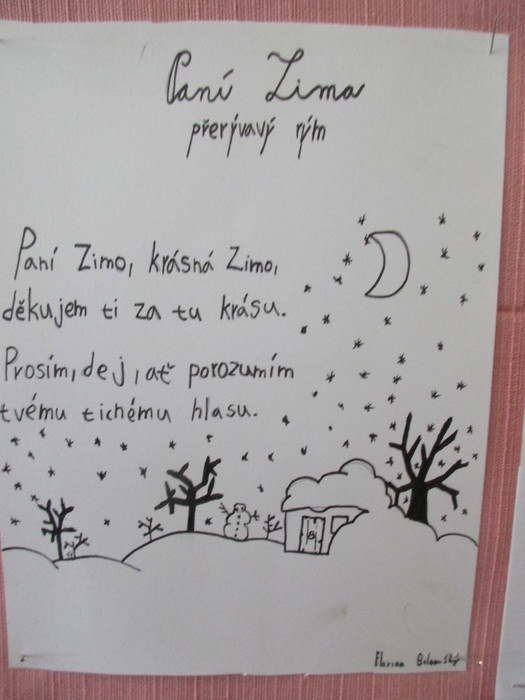 Paní Zima
přerývavý rým
Paní Zimo, krásná Zimo,
děkujem ti za tu krásu.
Prosím, dej, ať porozumím
tvému tichému hlasu.
Florian